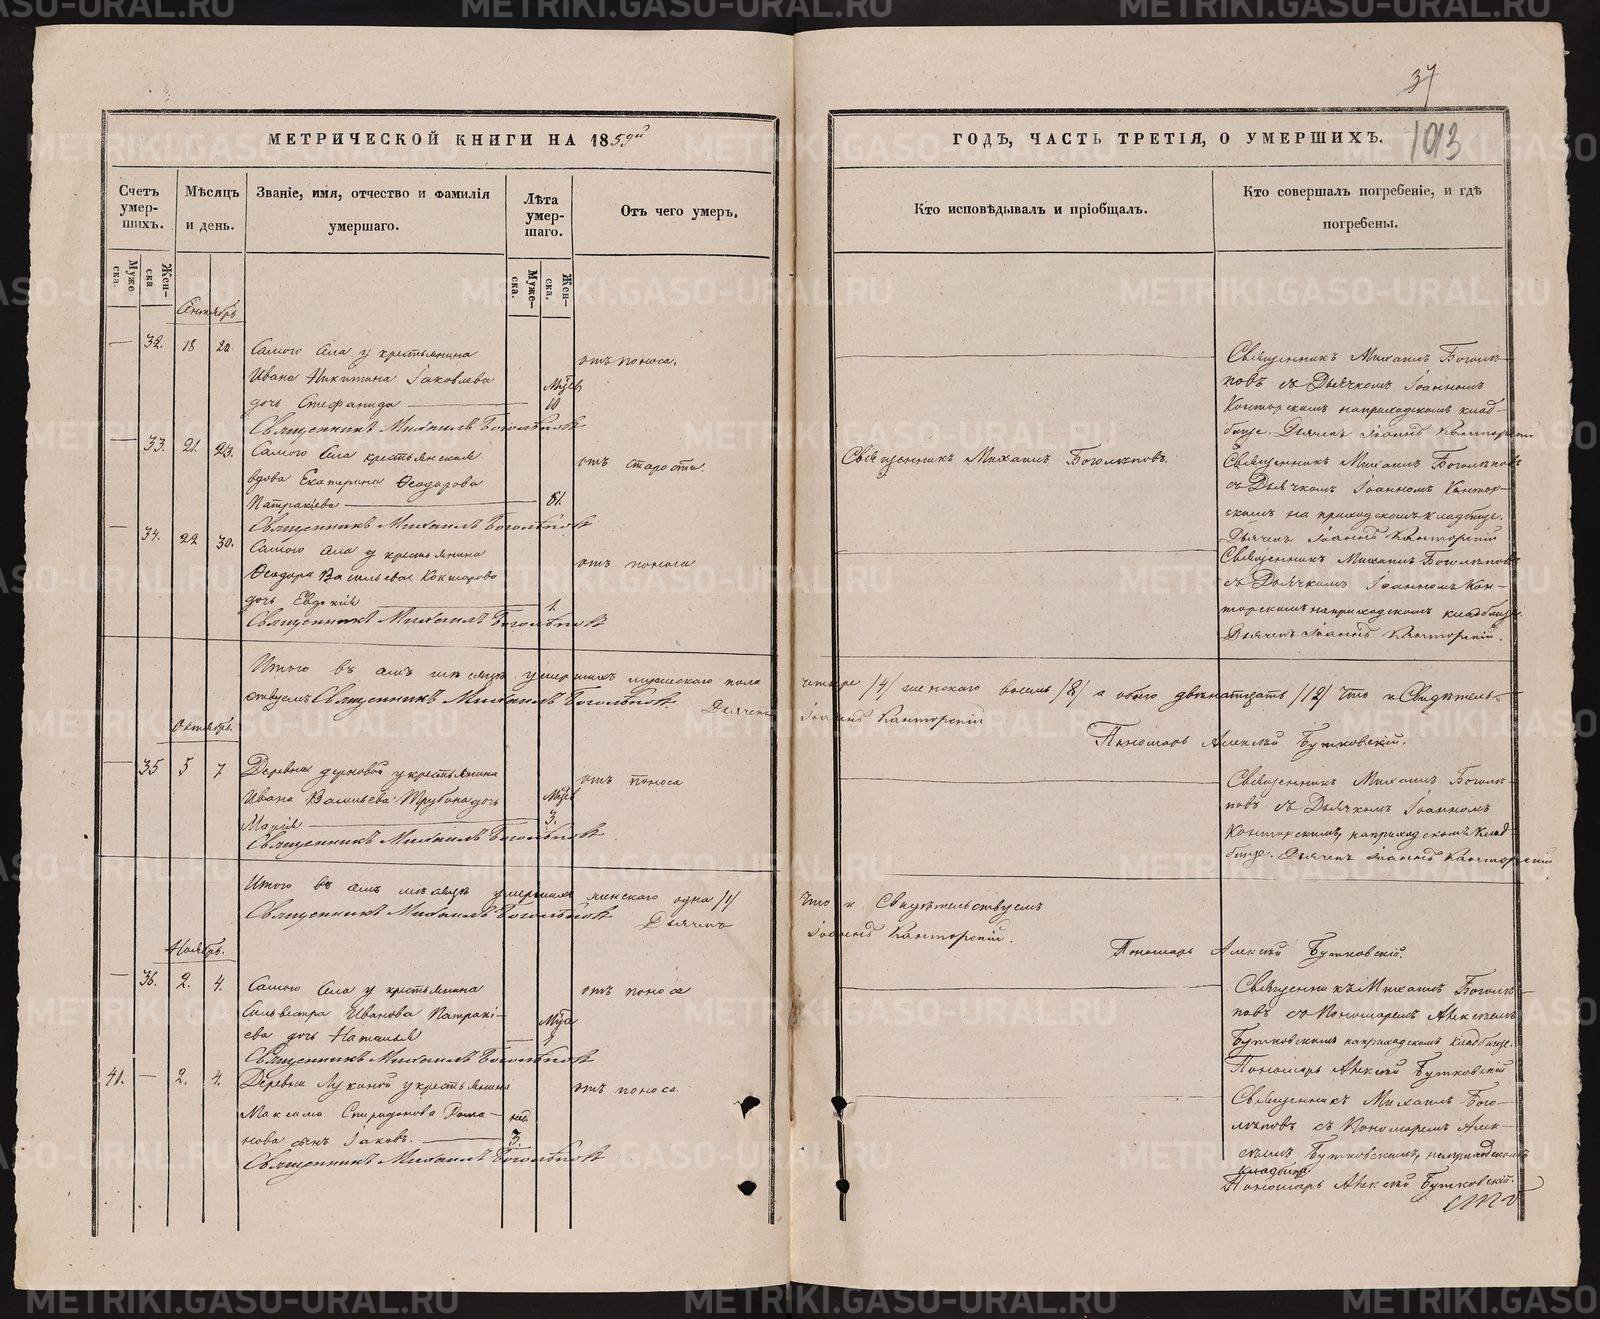 37
МЕТРИЧЕСКОЙ КНИГИ НА 1859й
ГОДЪ, ЧАСТЬ ТРЕТІЯ, О УМЕРШИХЪ.
1013
Счетъ умер-шихъ.
Мѣсяцъ и день.
Званіе, имя, отчество и фамилія умершаго.
Лѣта умер-шаго.
Отъ чего умеръ.
Кто исповѣдывалъ и пріобщалъ.
Кто совершалъ погребеніе, и гдѣ погребены.
Муже-ска.
Жен-ска.
Муже-ска.
Жен-ска.
Сентябрь
— 32. 18 20
Самого Села у крестьянина
Ивана Никитина Іаковлева
дочь Стефанида
10
отъ поноса.
Священникъ Михаилъ Боголѣповъ
Священникъ Михаилъ Боголѣ-
повъ съ Дьячкомъ Іоанномъ
Конторскимъ на приходскомъ клад-
бище. Дьячекъ Іоаннъ Канторскій
— 33. 21. 23.
Самого Села крестьянская
вдова Екатерина Ѳеодорова
Патракіева
81.
отъ старости.
Священникъ Михаилъ Боголѣповъ
Священникъ Михаилъ Боголѣповъ.
Священникъ Михаилъ Боголѣповъ
съ Дьячкомъ Іоанномъ Кантор-
скимъ на приходскомъ кладбище.
Дьячекъ Іоаннъ Канторскій
— 34. 22 30.
Самого Села у крестьянина
Ѳеодора Васильева Кокшарова
дочь Евдокія
1.
отъ поноса
Священникъ Михаилъ Боголѣповъ
Священникъ Михаилъ Боголѣповъ
съ Дьячкомъ Іоанномъ Кон-
торскимъ на приходскомъ кладбище.
Дьячекъ Іоаннъ Канторскій.
Итого въ семъ мѣсяцѣ умершихъ мужескаго пола четыре /4/ женскаго восемь /8/ а обоего двенатцать /12/ Что и Свидѣтель-
ствуемъ Священникъ Михаилъ Боголѣповъ. Дьячекъ Іоаннъ Канторскій
Пономарь Алексѣй Бутковскій.
Октябрь.
— 35 5 7
Деревни у крестьянина
Ивана Васильева Трубина дочь
Марія
3.
отъ поноса
Священникъ Михаилъ Боголѣповъ
Священникъ Михаилъ Боголѣ-
повъ съ Дьячкомъ Іоанномъ
Конторскимъ, на приходскомъ клад-
бище. Дьячекъ Іоаннъ Канторскій
Итого въ семъ мѣсяцѣ умершихъ женскаго одна /1/ Что и Свидѣтельствуемъ
Священникъ Михаилъ Боголѣповъ Дьячекъ Іоаннъ Канторскій.
Пономарь Алексѣй Бутковскій.
Ноябрь.
— 36. 2. 4.
Самого Села у крестьянина
Сильвестра Иванова Патракі-
ева дочь Наталья
отъ поноса
Священникъ Михаилъ Боголѣповъ
Священникъ Михаилъ Боголѣ-
повъ съ Пономаремъ Алексѣемъ
Бутковскимъ на приходскомъ кладбище.
Пономарь Алексѣй Бутковскій
41. — 2. 4.
Деревни Лукиной у крестьянина
Максима Спиридонова Рома-
нова сынъ Іаковъ.
3.
отъ поноса.
Священникъ Михаилъ Боголѣповъ
Священникъ Михаилъ Бого-
лѣповъ съ Пономаремъ Алек-
сѣемъ Бутковскимъ, на приходскомъ
кладбище
Пономарь Алексѣй Бутковскій.
METRIKI.GASO-URAL.RU